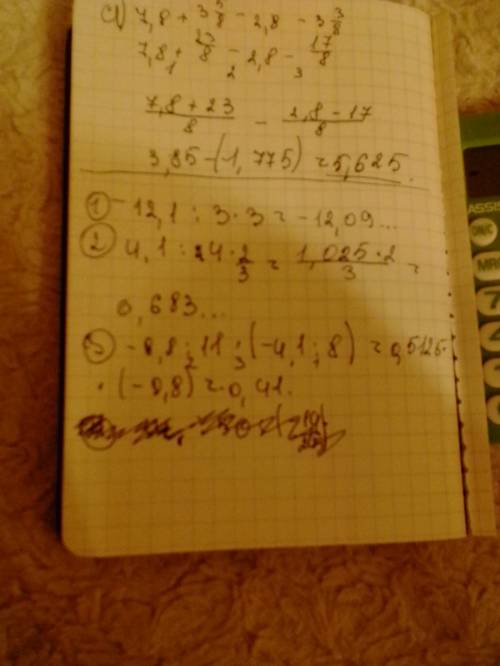 а) 7,8 + 3 3/8 - 2,8 - 3 3/8
7,8 + 23/8 - 2,8 - 17/8
1 2 3
7,8 + 23/8 - 2,8 - 17/8
3,85 - (-1,775) = 5,625.
① -12,1 : 3 · 3 = -12,09...
② 4,1 : 24 · 2/3 = 1,025 · 2/3 =
0,683...
③ -0,8 : 11 : (-4,1 : 8) = 0,5125
· (-0,8) = -0,41.